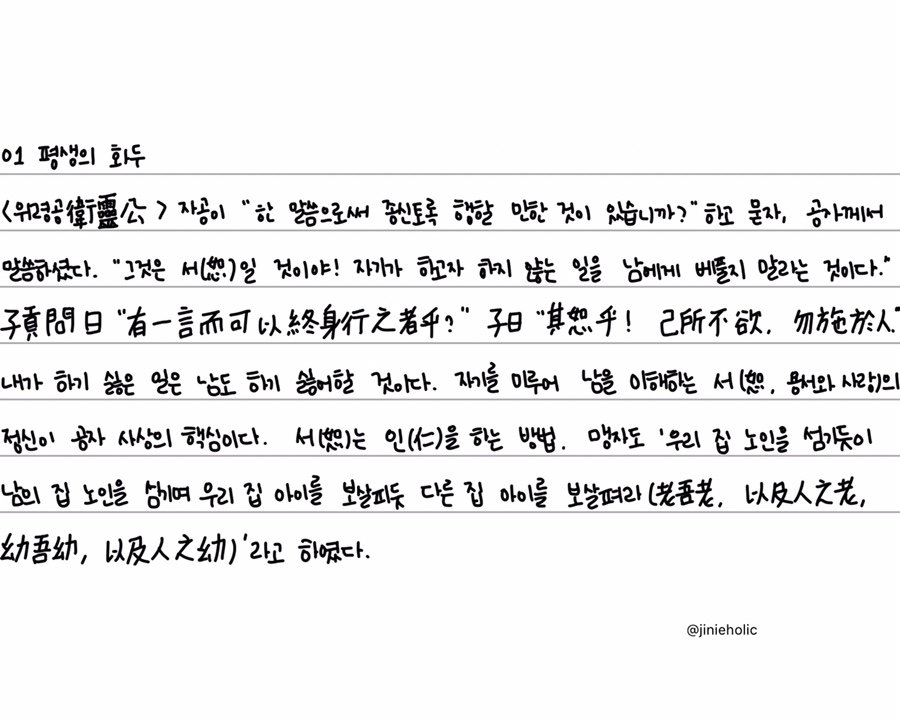 01 평생의 화두
<위령공衛靈公 > 자공이 "한 말씀으로써 종신토록 행할 만한 것이 있습니까?" 하고 묻자, 공자께서
말씀하셨다. "그것은 서(恕)일 것이야! 자기가 하고자 하지 않는 일을 남에게 베풀지 말라는 것이다."
子貢問曰 "有一言而可以終身行之者乎?" 子曰 "其恕乎! 己所不欲, 勿施於人."
내가 하기 싫은 일은 남도 하기 싫어할 것이다. 자기를 미루어 남을 이해하는 서(恕, 용서와 사랑)의
정신이 공자 사상의 핵심이다. 서(恕)는 인(仁)을 하는 방법. 맹자도 '우리 집 노인을 섬기듯이
남의 집 노인을 섬기며 우리 집 아이를 보살피듯 다른 집 아이를 보살펴라(老吾老, 以及人之老,
幼吾幼, 以及人之幼)'라고 하였다.
@jinieholic